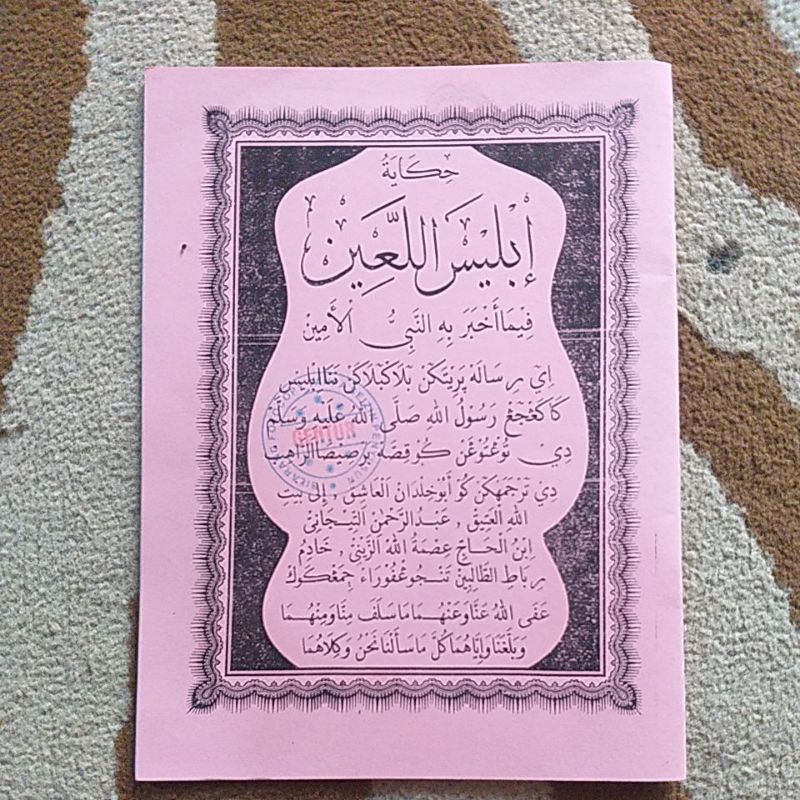 حِكَايَةُ
إِبْلِيسَ اللَّعِين
فِيمَا أَخْبَرَ بِهِ النَّبِيُّ الْأَمِين
اِيْ رِسَالَهْ پَرَيْتَكَنْ بَلَاكْبَلَاكَنْ نَنَا إِبْلِيس
كَا كَڠْجَڠْ رَسُولُ اللهِ صَلَّى اللهُ عَلَيْهِ وَسَلَّمْ
دِيْ تُوڠْتُوڠَنْ كُوْ قِصَّةْ بَرْصِيْصَا الرَّاهِب
دِيْ تَرْجَمَهْكَنْ كُوْ أَبُوْ خِلْدَانْ الْعَاشِقْ ، إِلَى بَيْتِ
اللهِ الْعَتِيقْ ، عَبْدُ الرَّحْمٰنْ التِّيجَانِيْ
اِبْنُ الْحَاجْ عِصْمَةُ اللهْ الزَّيْنِيْ ، خَادِمْ
رِبَاطِ الطَّالِبِيْنْ تَنْجُوڠْفُوْرَاءْ جِمَعْكَوكْ
عَفَى اللهُ عَنَّا وَعَنْهُمَا مَا سَلَفَ مِنَّا وَمِنْهُمَا
وَبَلَّغَنَا وَإِيَّاهُمَا كُلَّ مَا سَأَلْنَا نَحْنُ وَكِلَاهُمَا
GENTUR